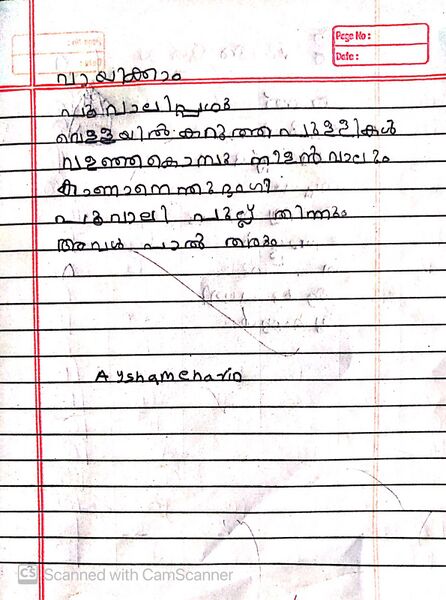 Page No :
Date :
വായിക്കാം
പൂവാലിപ്പശു
വെള്ളയിൽ കറുത്ത പുള്ളികൾ
വളഞ്ഞകൊമ്പും നീളൻ വാലും
കാണാനെന്തു ഭംഗി
പൂവാലി പുല്ല് തിന്നും
അവൾ പാൽ തരും
Ayshameharin
CS Scanned with CamScanner